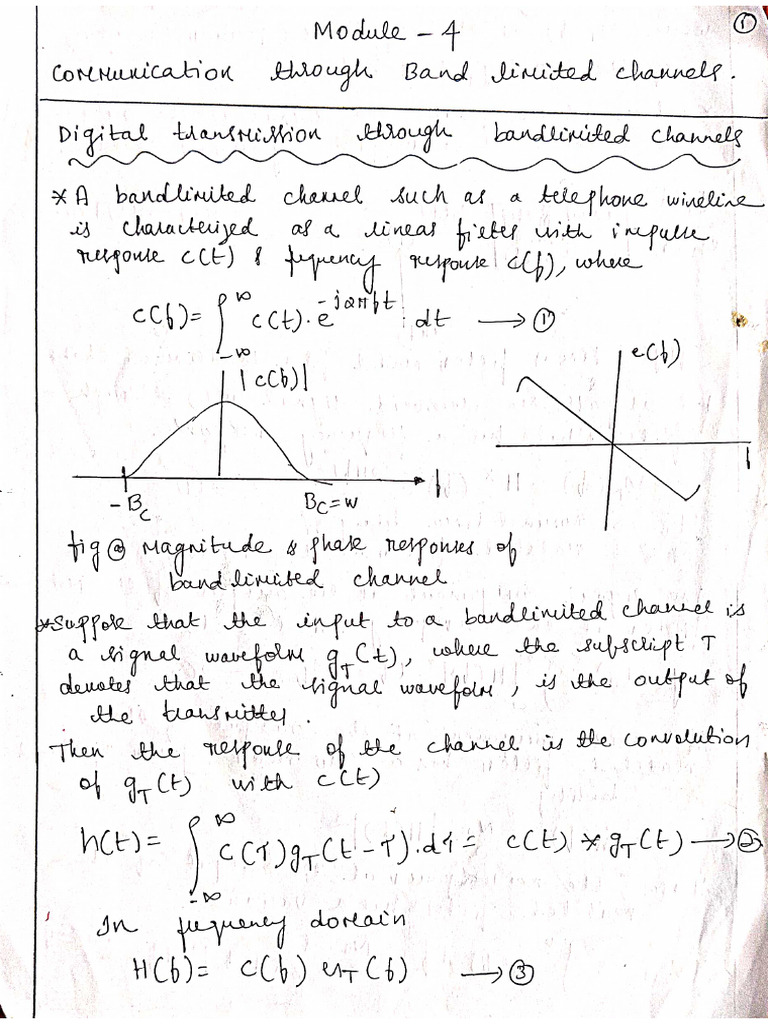 ①
Module - 4
Communication through Band limited channels.
Digital transmission through bandlimited channels
* A bandlimited channel such as a telephone wireline
is characterized as a linear filter with impulse
response c(t) & frequency response c(f), where
c(f) = ∫_{-∞}^{∞} c(t) . e^{-j2πft} dt → ①
|c(f)|
θ(f)
f
f
-B_C
B_C = W
fig ⓐ Magnitude & phase responses of
bandlimited channel
* Suppose that the input to a bandlimited channel is
a signal waveform g_T(t), where the subscript T
denotes that the signal waveform, is the output of
the transmitter.
Then the response of the channel is the convolution
of g_T(t) with c(t)
h(t) = ∫_{-∞}^{∞} c(τ) g_T(t-τ) . dτ = c(t) * g_T(t) → ②
In frequency domain
H(f) = c(f) G_T(f) → ③